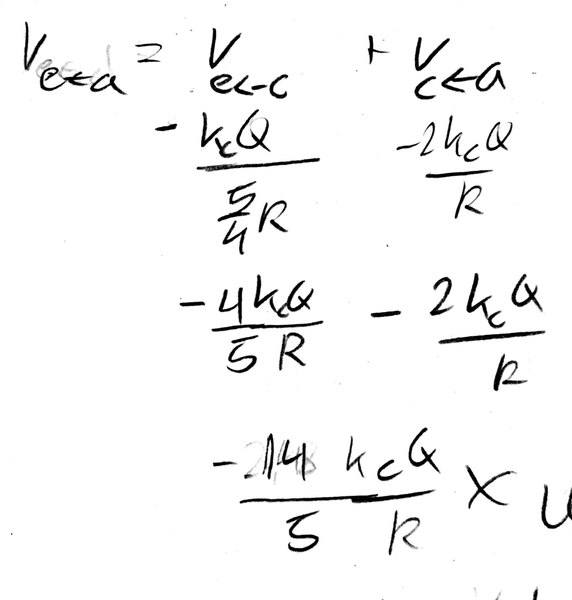 V e←a = V e<-c + V c←a
- kcQ / 5/4 R -2kcQ / R
- 4kcQ / 5 R - 2kcQ / R
- 14 kcQ / 5 R X